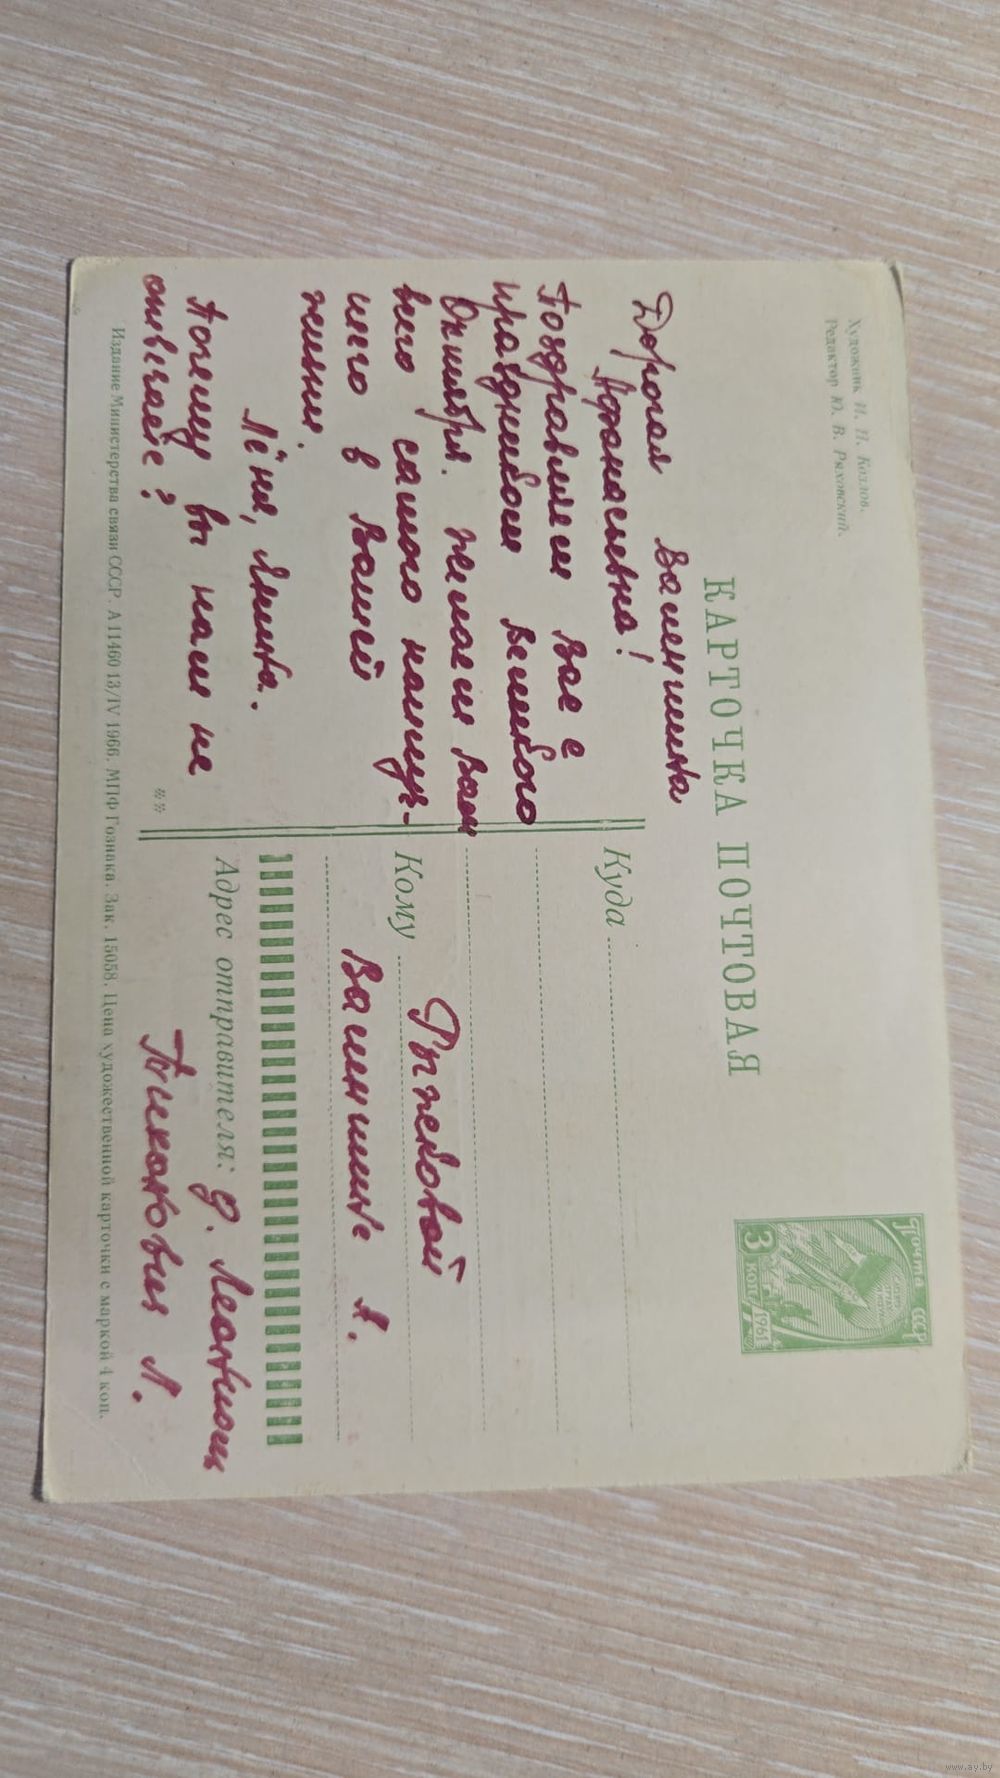 Художник И. П. Козлов.
Редактор Ю. В. Ряховский.
КАРТОЧКА ПОЧТОВАЯ
Почта СССР
3 коп.
1961
Дорогая Валентина
Афанасьевна!
Поздравляем Вас с
праздником Великого
Октября. Желаем Вам
всего самого наилуч-
шего в Вашей
жизни.
Лёня, Лина.
Почему вы нам не
отвечаете?
Куда
Кому
Рыжковой
Валентине А.
Адрес отправителя:
д.
Л.
Издание Министерства связи СССР. А 11460 13/IV 1966. МПФ Гознака. Зак. 15058. Цена художественной карточки с маркой 4 коп.
www.ay.by